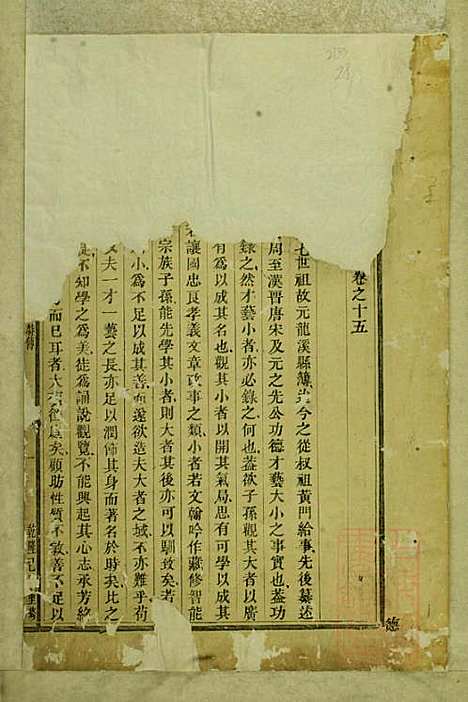 卷之十五
七世祖故元龍溪縣簿尹今之從叔祖黃門給事先後纂述
周至漢晉唐宋及元之先公功德才藝大小之事實也蓋功
錄之然才藝小者亦必錄之何也蓋欲子孫觀其大者以廣
有為以成其名也觀其小者以開其氣局思有可學以成其
讓國忠良孝義文章政事之類小者若文翰吟作藏修智能
宗族子孫能先學其小者則大者其後亦可以馴致矣若
小為不足以成其善而遂欲造夫大者之域不亦難乎苟
夫一才一藝之長亦足以潤飾其身而著名於時矣比之
不知學之為美徒為誦說觀覽不能興起其心志承芳
而已耳者大有徑庭矣顧助性質不敏善不足以
乾隆己
德